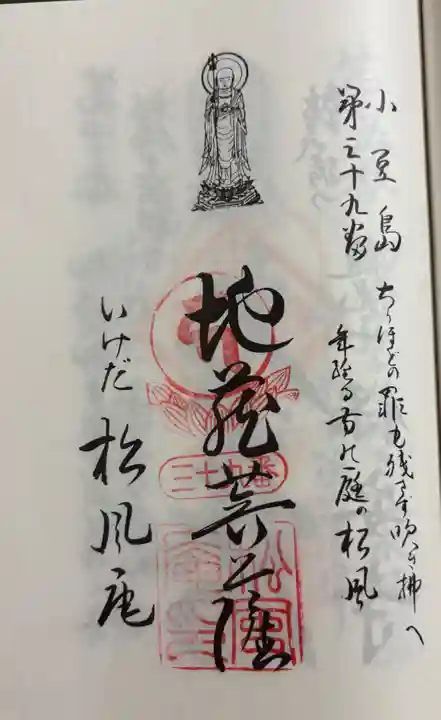 小豆島
第三十九番
ちりほどの罪も残さず吹き拂へ
年経る寺の庭の松風
地蔵菩薩
三十九番
いけだ 松風庵
松風庵印